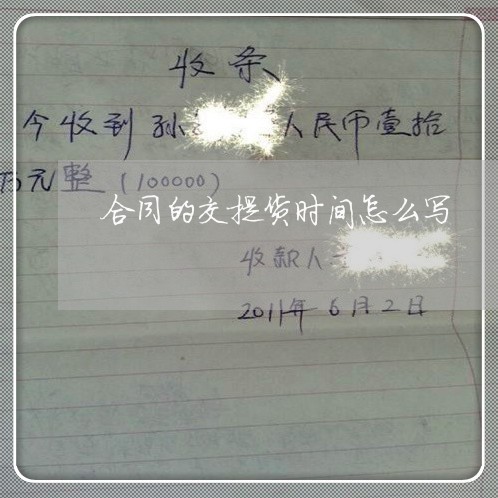 收条
今收到孙 人民币壹拾
万元整（100000）
合同的交提货时间怎么写
收款人
2011年6月2日